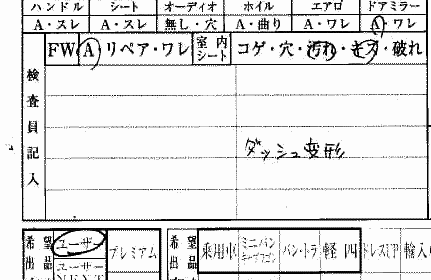 ハンドル シート オーディオ ホイル エアロ ドアミラー
A・スレ A・スレ 無し・穴 A・曲り A・ワレ A・ワレ
FW A リペア・ワレ 室内シート コゲ・穴・汚れ・キズ・破れ
検査員記入
ダッシュ変形
希望 ユーザー プレミアム 希望 乗用車 ミニバン バン・トラ 軽四 ドレスUP 輸入
出品 ユーザー 出品
NEXT